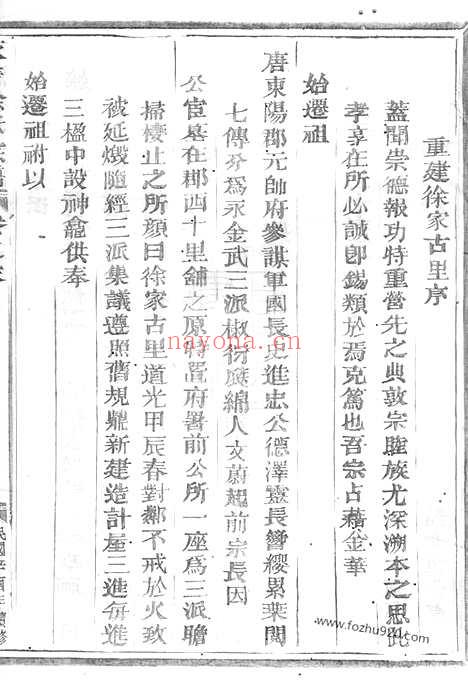 重建徐家古里序
蓋聞崇德報功特重營先之典敦宗睦族尤深溯本之思此
孝享在所必誠卽錫類於焉克篤也吾宗占藉金華
始遷祖
唐東陽郡元帥府參謀軍國長史進忠公德澤靈長簪纓累葉閱
七傳分爲永金武三派椒衍瓜綿人文蔚起前宗長因
公宦墓在郡西十里舖之原特置府署前公所一座爲三派瞻
掃棲止之所顏曰徐家古里道光甲辰春對鄰不戒於火致
被延燬隨經三派集議遵照舊規鼎新建造計屋三進每進
三楹中設神龕供奉
始遷祖祔以
民國辛酉年續修
nayona.cn
www.fozhu920.com